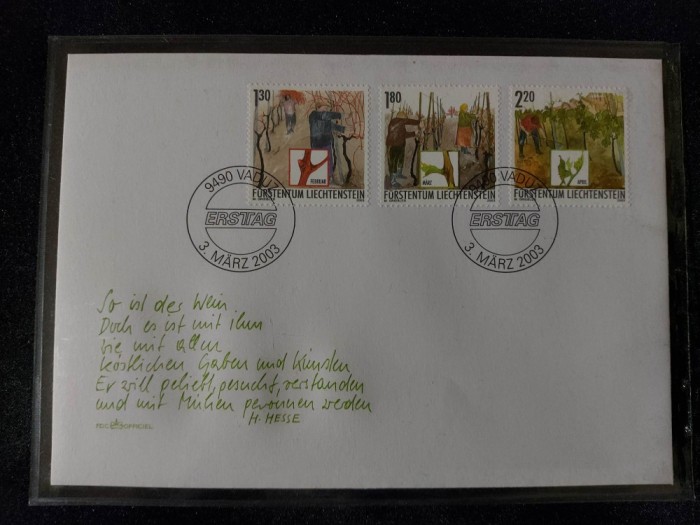 1.30
FEBRUAR
FÜRSTENTUM LIECHTENSTEIN
1.80
MÄRZ
FÜRSTENTUM LIECHTENSTEIN
2.20
APRIL
FÜRSTENTUM LIECHTENSTEIN
9490 VADUZ
ERSTTAG
3. MÄRZ 2003
9490 VADUZ
ERSTTAG
3. MÄRZ 2003
So ist der Wein
Doch es ist mit ihm
wie mit allen
köstlichen Gaben und Künsten
Er will geliebt, gesucht, verstanden
und mit Mühen gewonnen werden
H. HESSE
FDC OFFICIEL